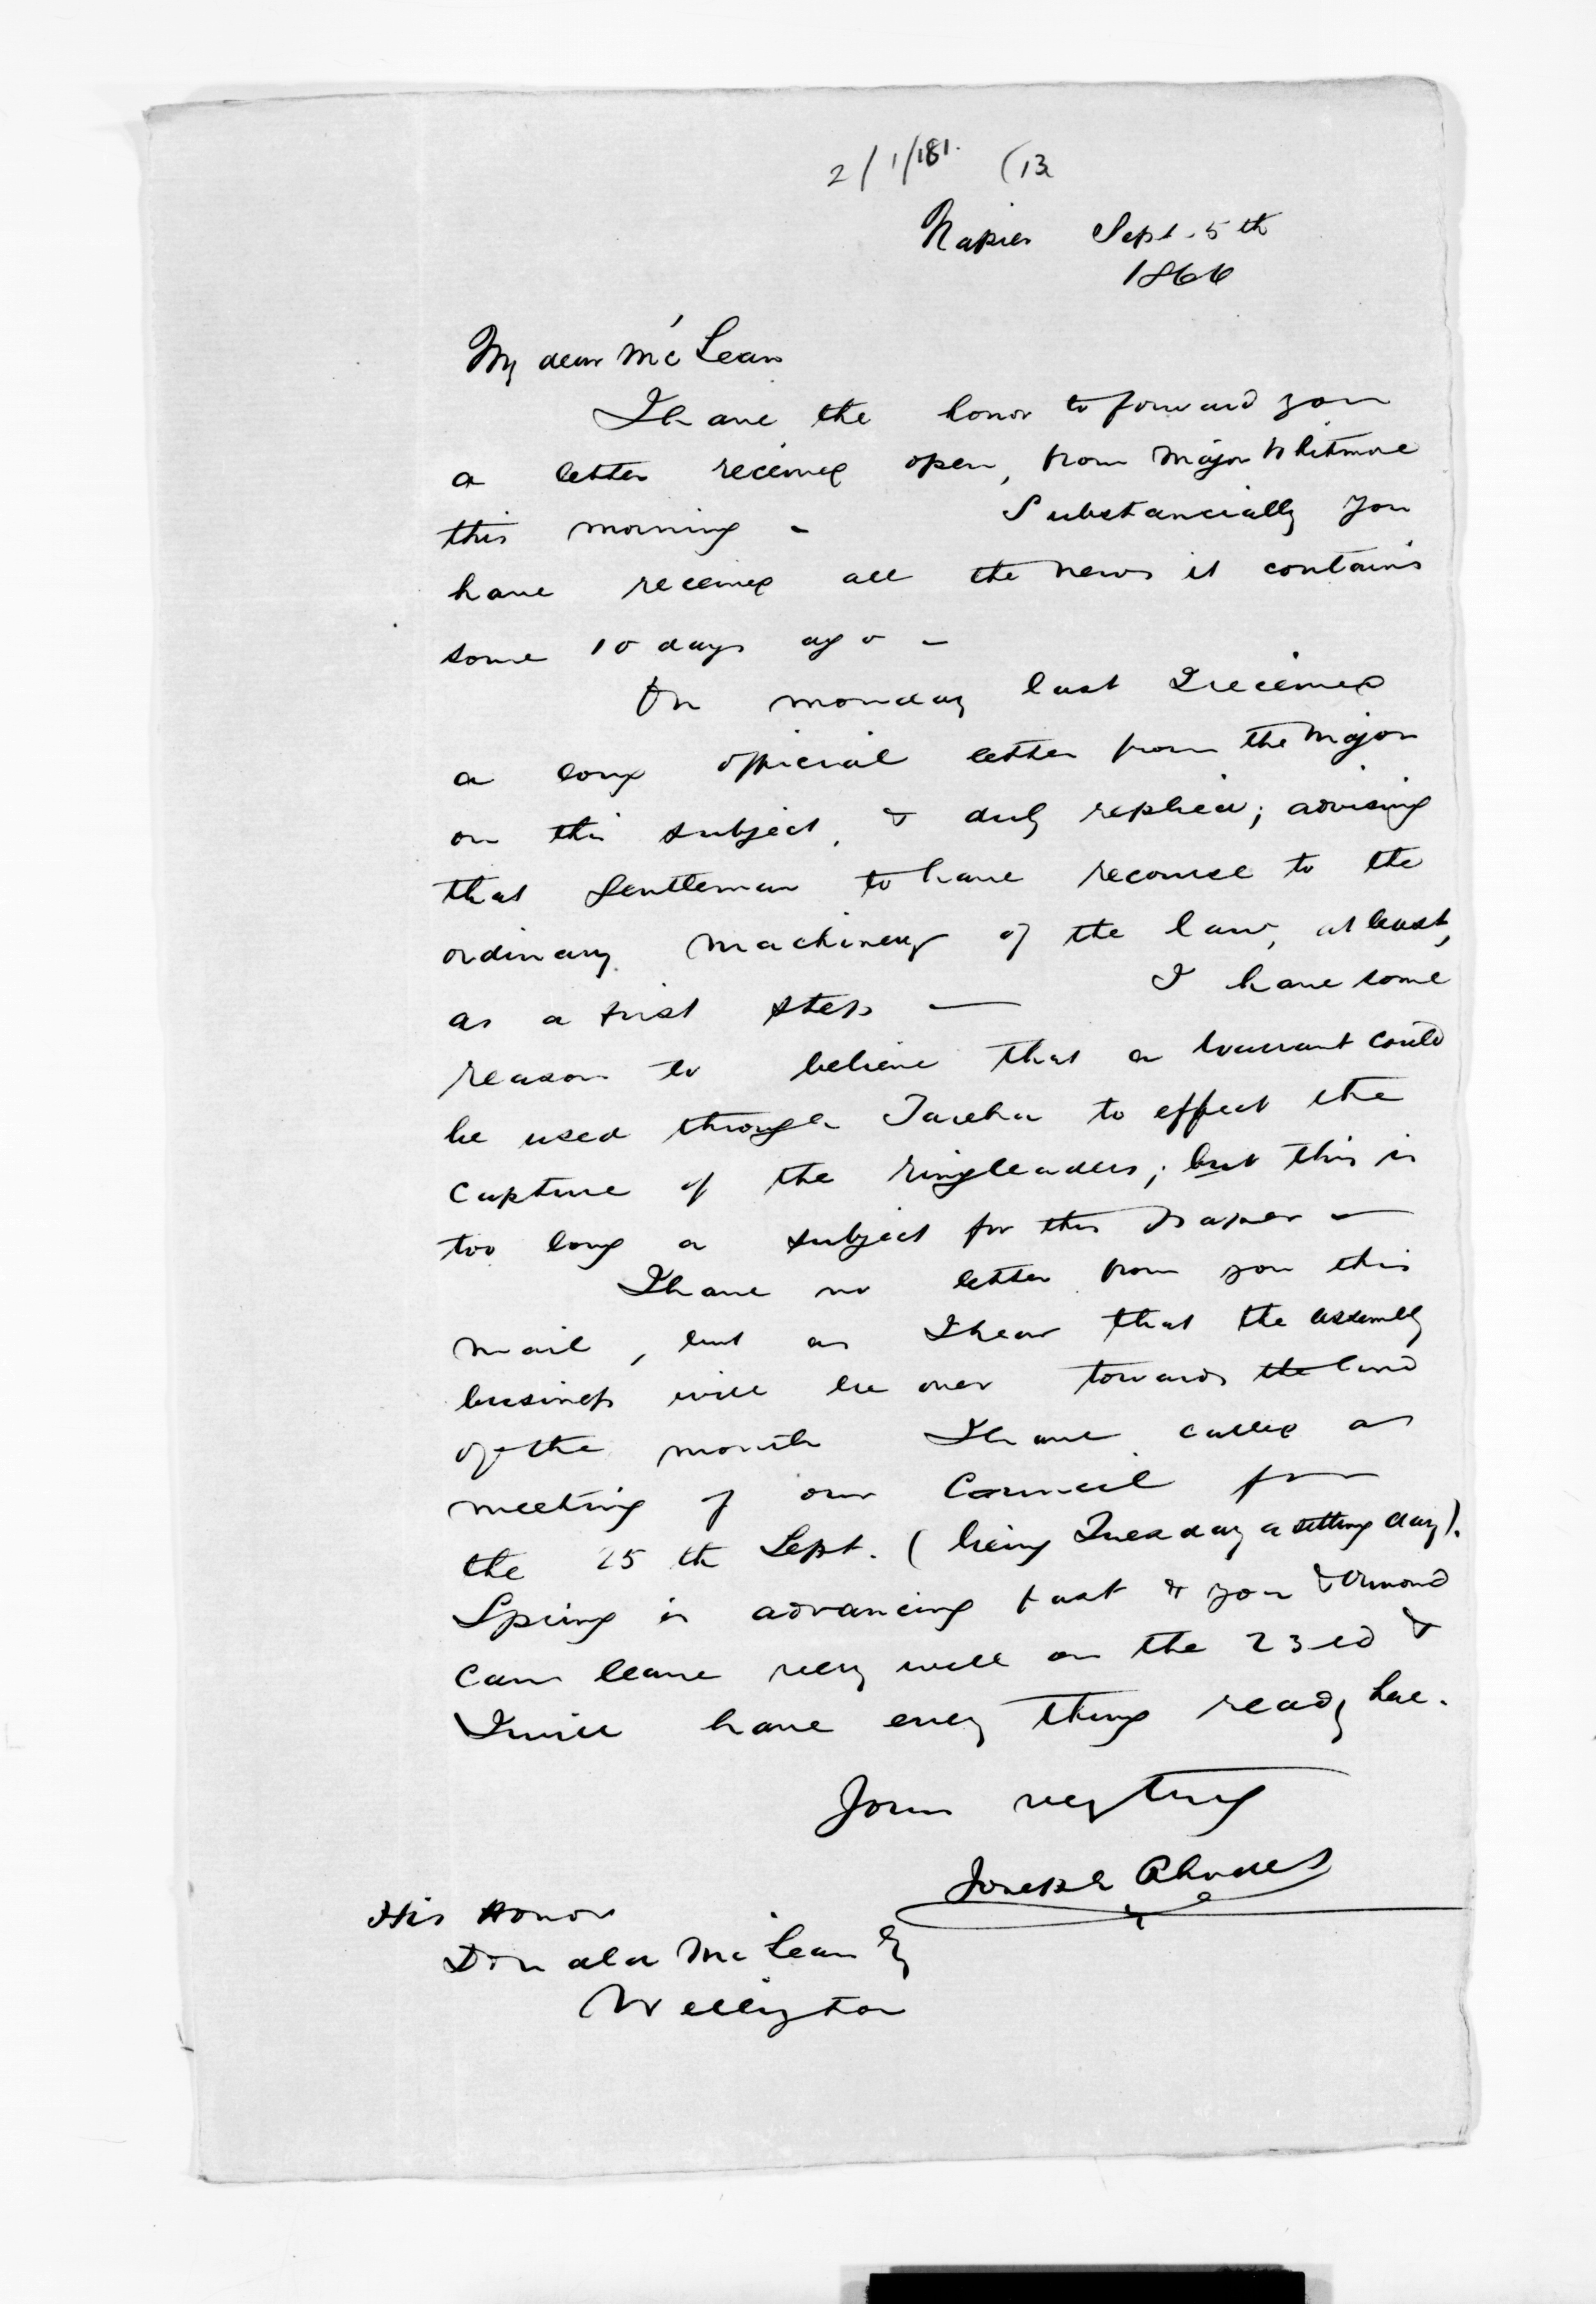 2/1/181. (13
Napier Sept. 5th
1866
My dear McLean
I have the honor to forward you
a letter received open, from Major Whitmore
this morning -
Substancially you
have received all the news it contains
some 10 days ago -
On monday last I received
a long official letter from the Major
on this subject, & duly replied; advising
that Gentleman to have recourse to the
ordinary machinery of the law, at least,
as a first step —
I have some
reason to believe that a warrant could
be used through Tareha to effect the
capture of the ringleaders; but this is
too long a subject for this paper —
I have no letter from you this
mail, but as I hear that the assembly
business will be over towards the end
of the month I have called a
meeting of our Council for
the 25th Sept. (being Tuesday a sitting day).
Spring is advancing fast & you & Ormond
can leave very well on the 23rd &
I will have every thing ready here.
Yours very truly
Joseph Rhodes
His Honor
Donald McLean Esq
Wellington